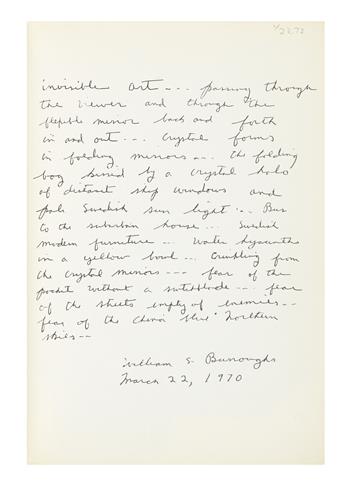 1/22.72
invisible art --- passing through
the viewer and through the
flexible mirror back and forth
in and out --- crystal forms
in folding mirrors --- the folding
boy by a crystal halo
of distant ship windows and
pale Swedish sun light --- Bus
to the suburban house -- Swedish
modern furniture -- water hyacinths
in a yellow bowl -- from
the crystal mirrors --- fear of the
pocket without a switchblade -- fear
of the streets empty of enemies --
fear of the blue Northern
skies --
William S. Burroughs
March 22, 1970